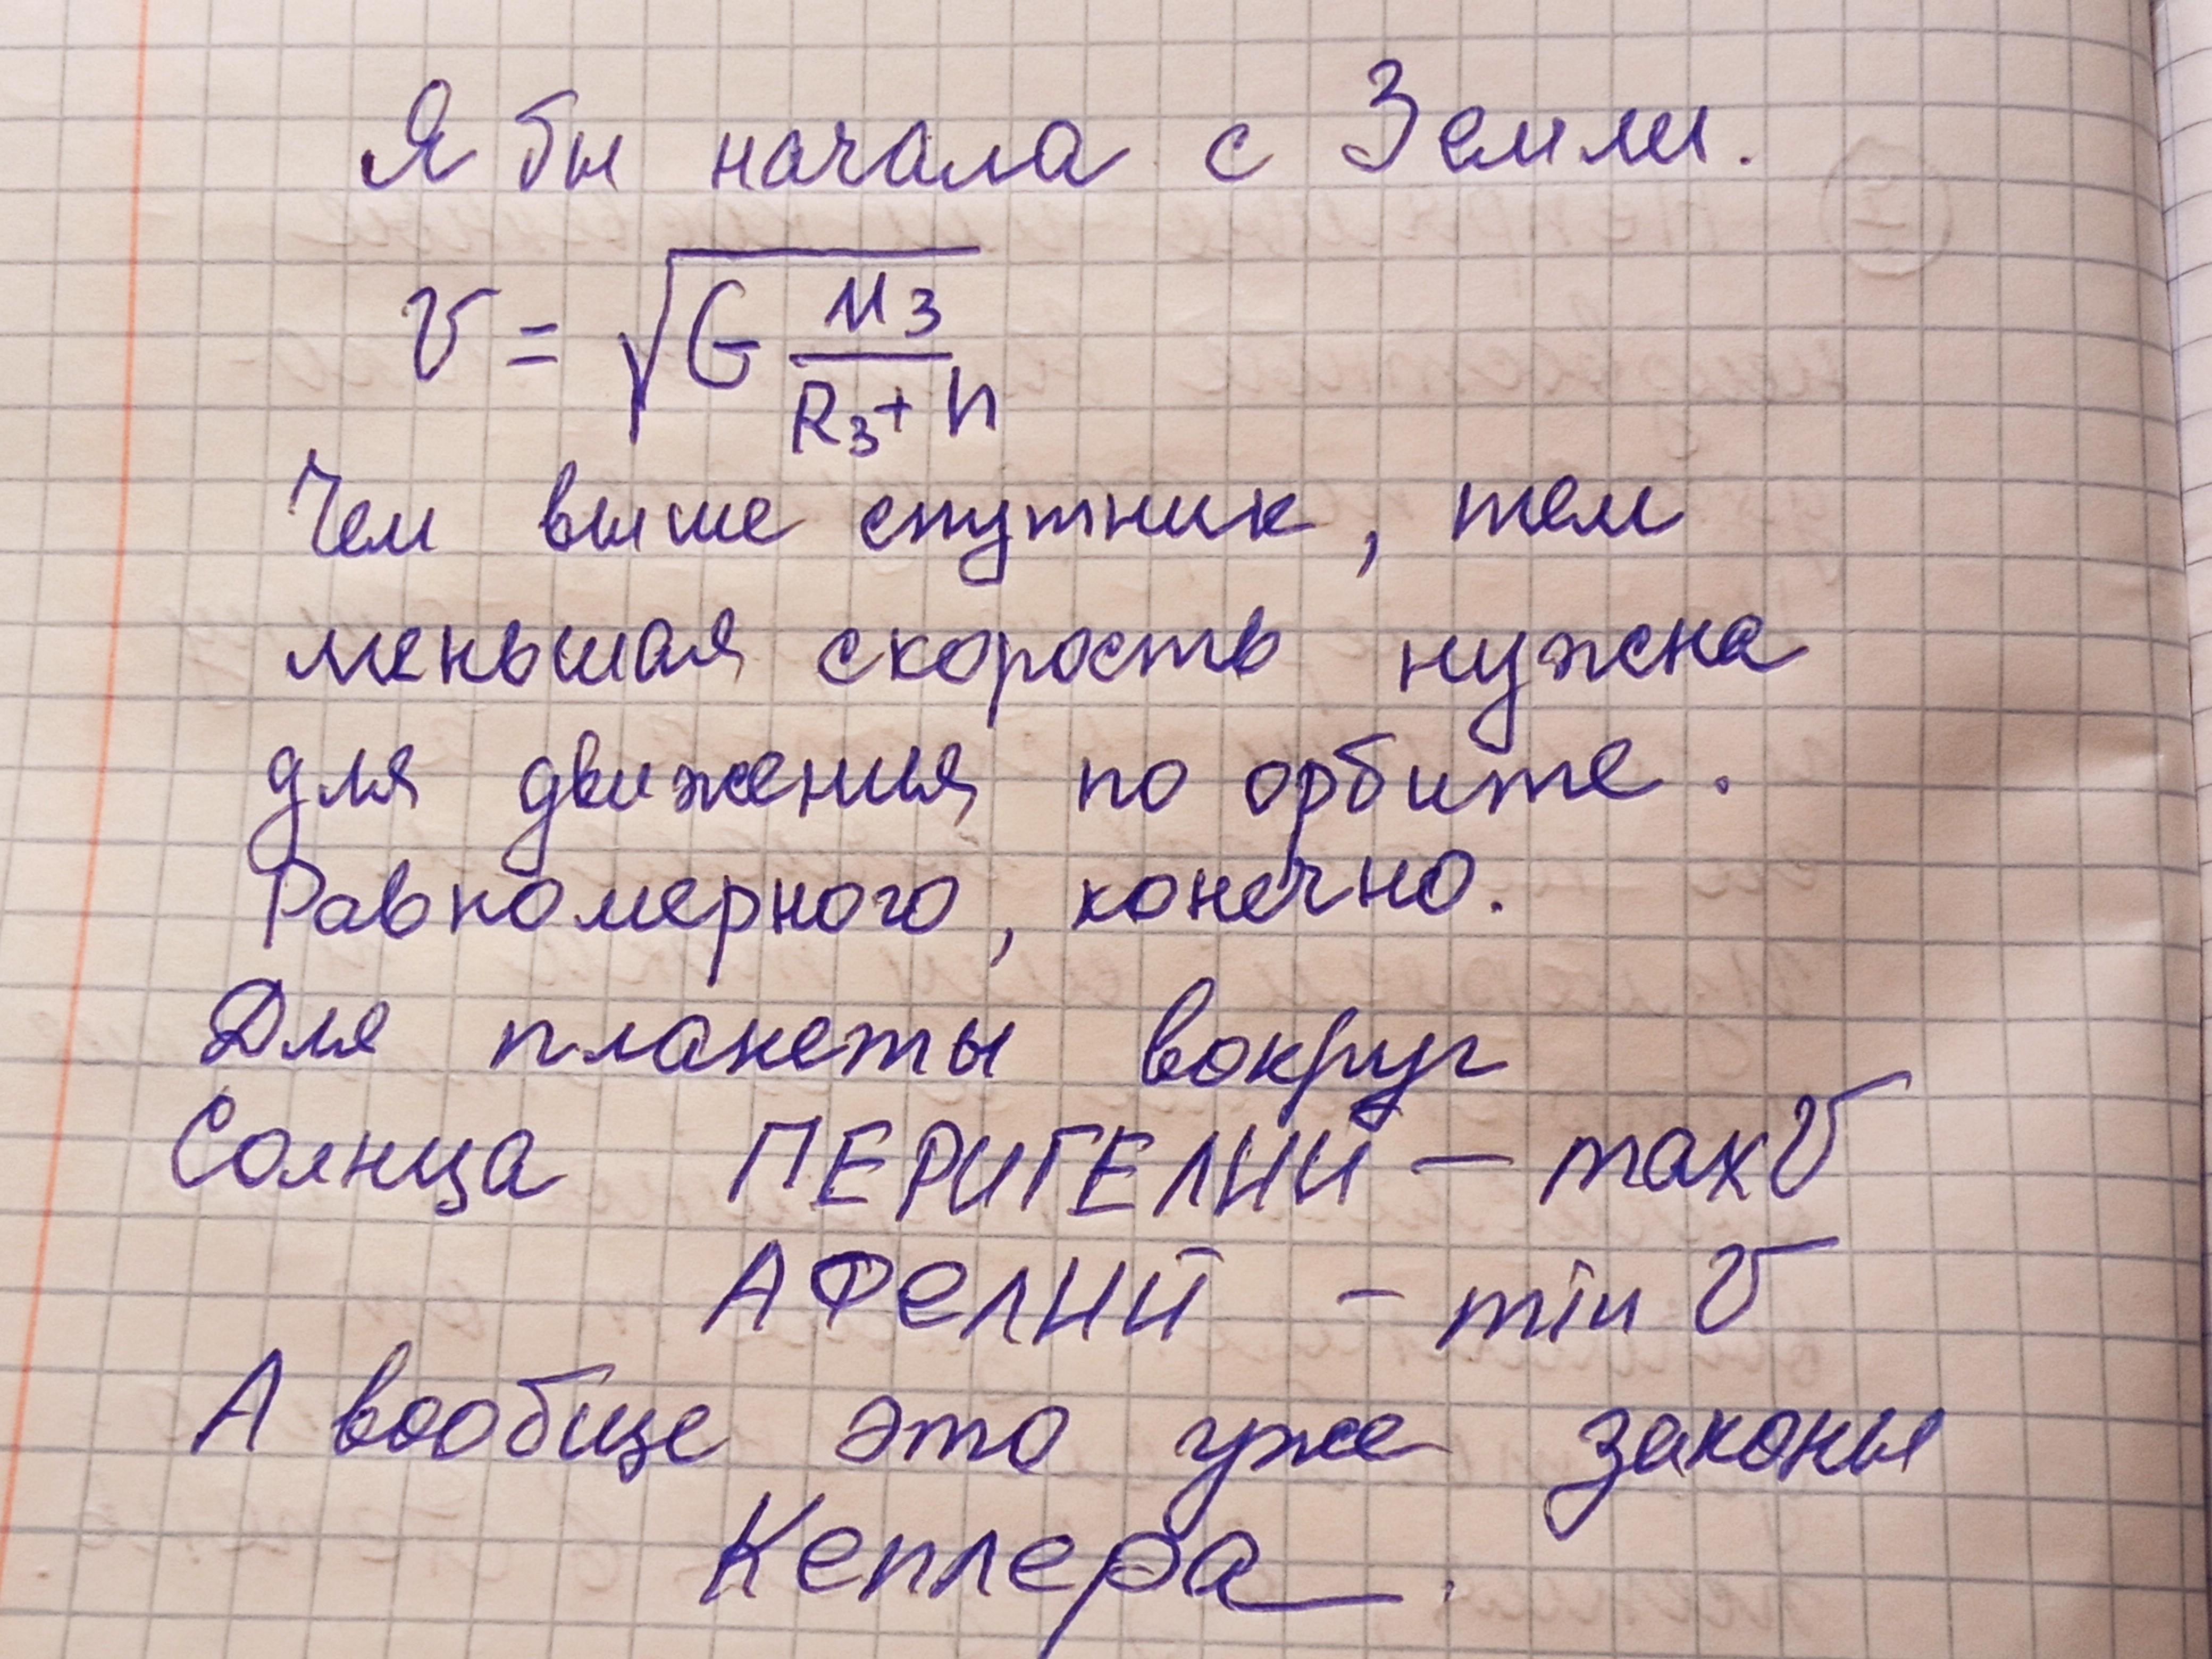 Я бы начала с Земли.
v = √G Mз / Rз + h
Чем выше спутник, тем
меньшая скорость нужна
для движения по орбите.
Равномерного, конечно.
Для планеты вокруг
Солнца ПЕРИГЕЛИЙ – max v
АФЕЛИЙ – min v
А вообще это уже законы
Кеплера.